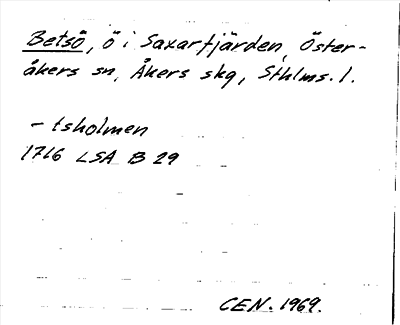 Betsö, ö i Saxarfjärden, Öster-
åkers sn, Åkers skg, Sthlms. l.
- tsholmen
1716 LSA B 29
CEN. 1969.